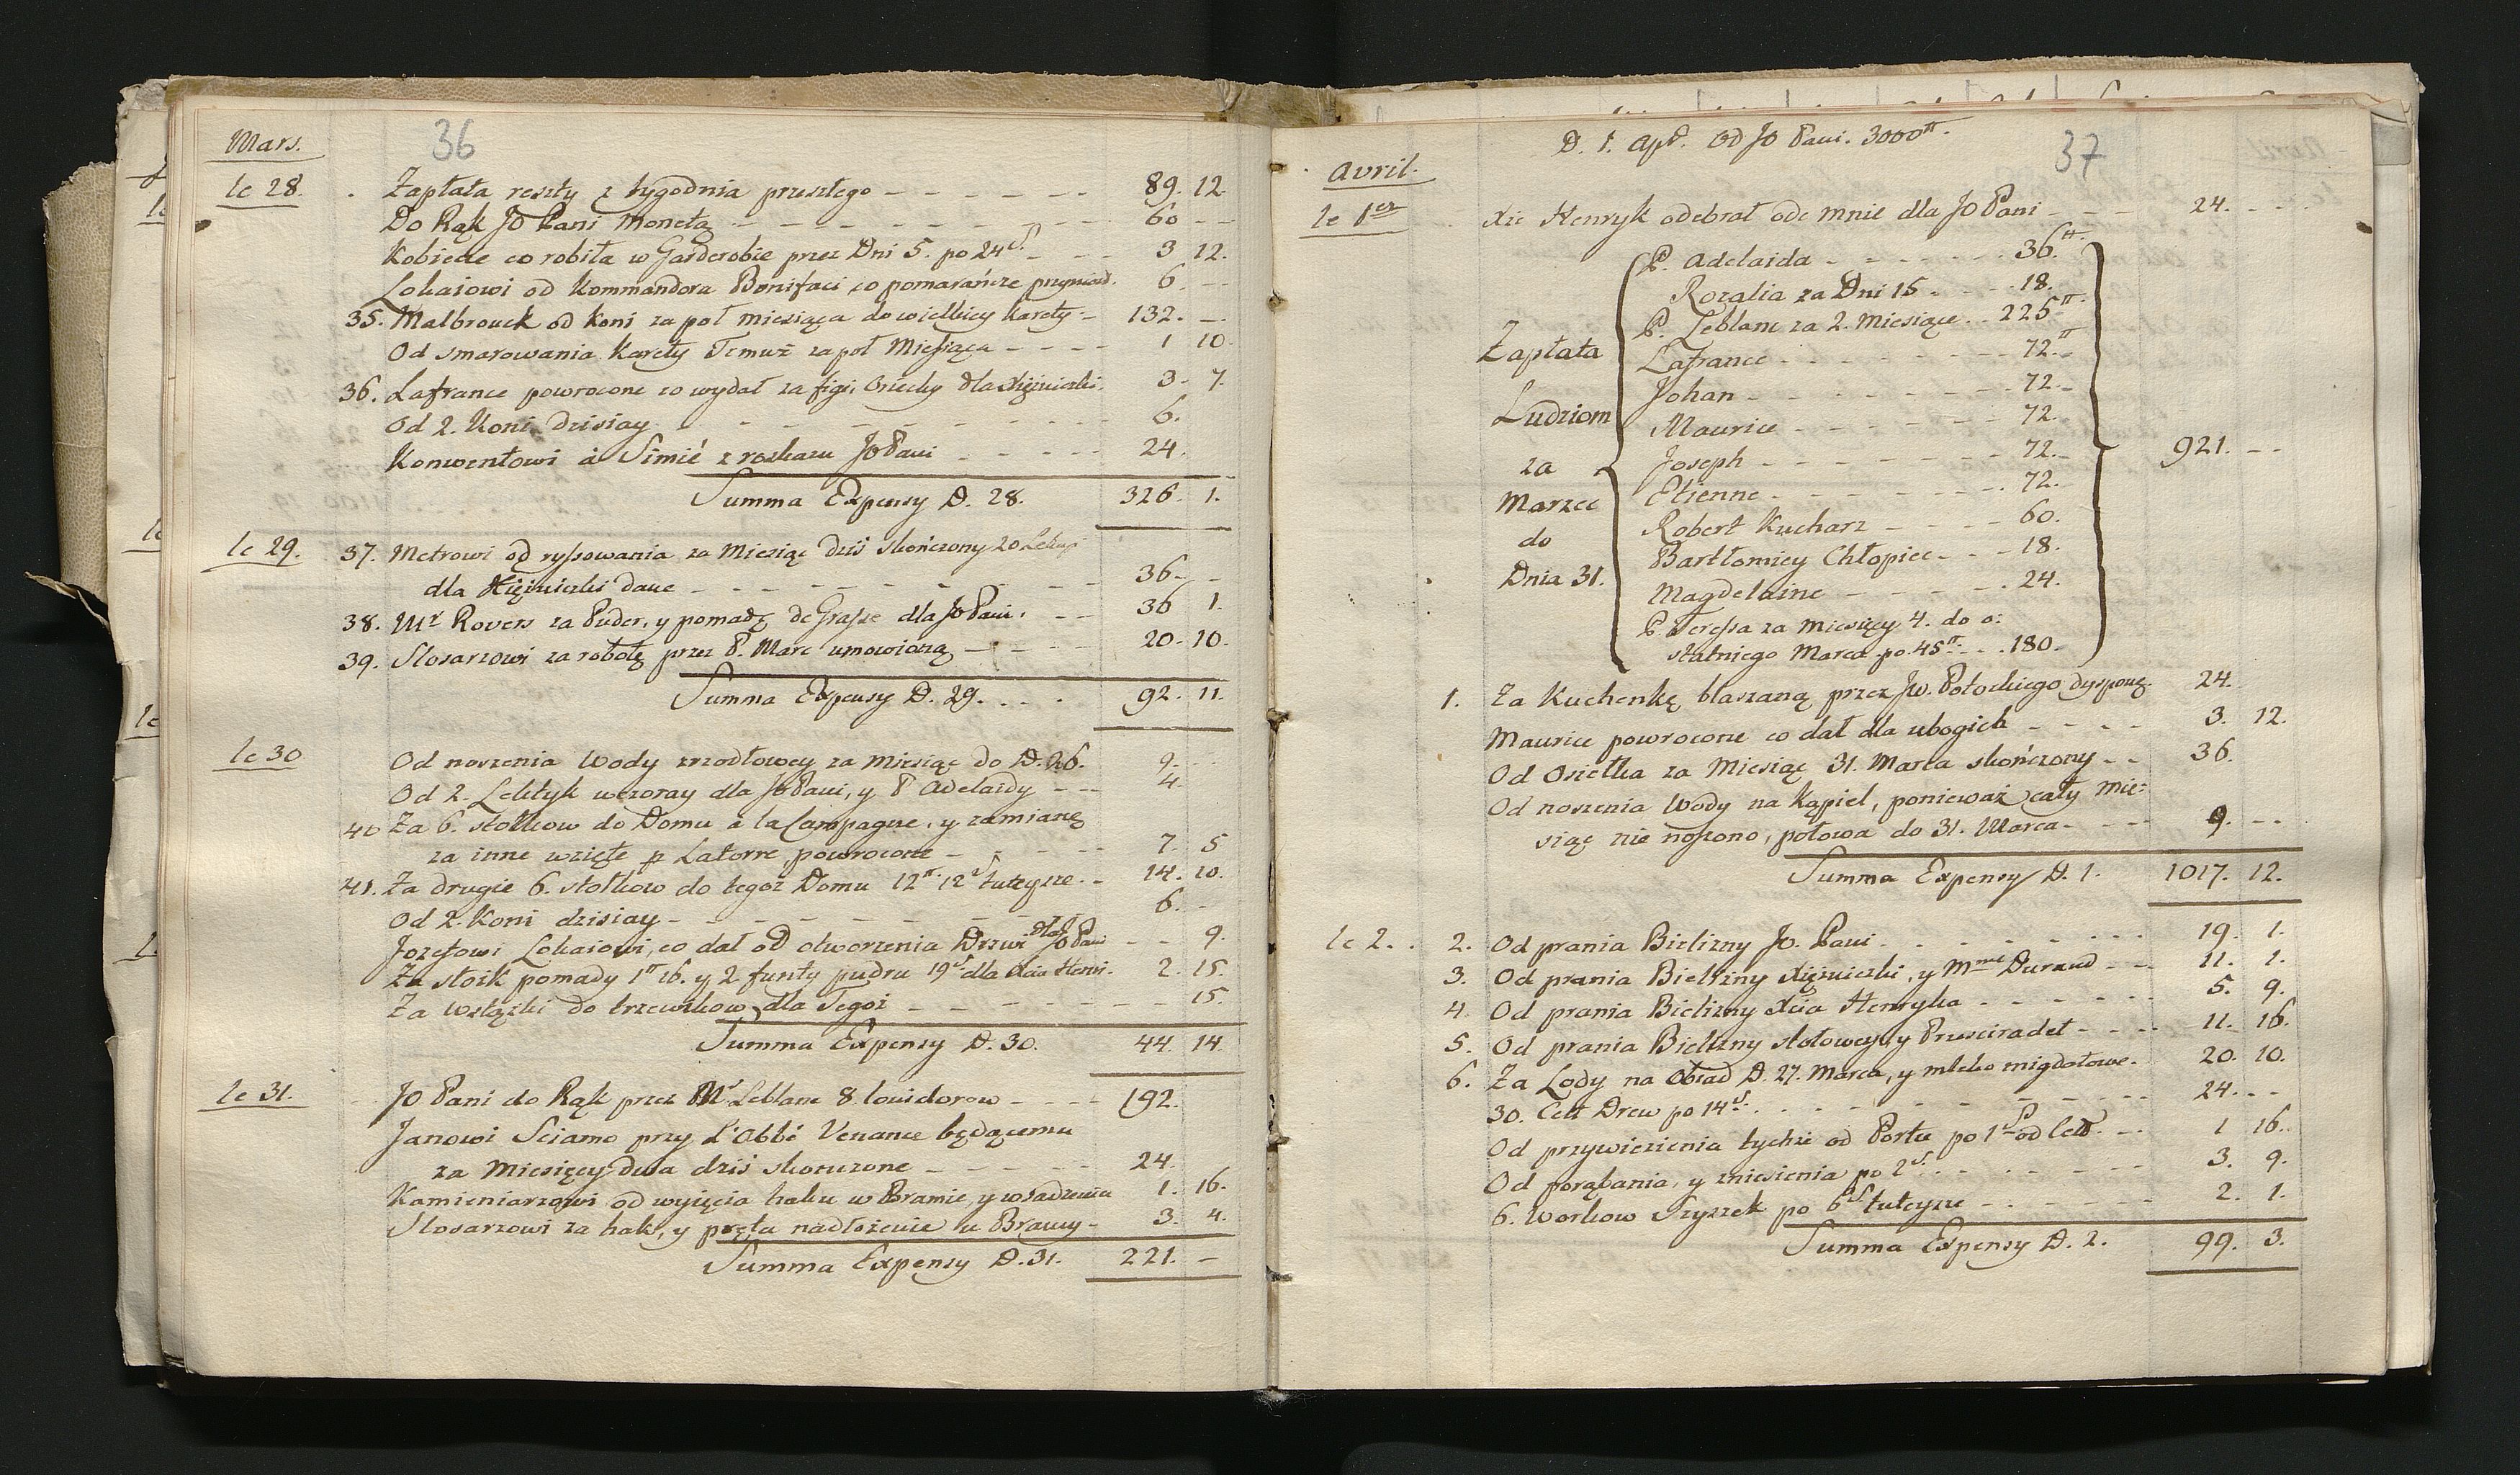 36
Mars.
le 28. Zapłata reszty z tygodnia przeszłego 89. 12.
Do Rąk JO Pani Monetą 60
Kobiecie co robiła w Garderobie przez Dni 5. po 24 s. 3 12.
Lokaiowi od Kommandora Bonifaci co pomarańcze przyniósł. 6.
35. Malbrouck od koni za poł miesiąca do wielkiey karety 132.
Od smarowania Karety Temuż za poł Miesiąca 1 10.
36. Lafrance powrocone co wydał za figi, Orzechy dla Xiężniczki. 3. 7.
Od 2. Koni dzisiay 6.
Konwentowi à Simié z roskazu JO Pani 24.
Summa Expensy D. 28. 326. 1.
le 29. 37. Metrowi od ryssowania za Miesiąc dziś skończony 20 Lekcyi
dla Xiężniczki dane 36
38. Mr Rovers za Puder, y pomadę de Grasse dla JO Pani. 36 1.
39. Slosarzowi za robotę przez P. Marc umowioną 20. 10.
Summa Expensy D. 29. 92. 11.
le 30 Od noszenia Wody zrzodłowey za Miesiąc do D. 26. 9.
Od 2. Lektyk wczoray dla JO Pani, y P Adelaidy 4.
40 Za 6. stołkow do Domu à la Campagne, y zamianę
za inne wzięte p Latorre, powrocone 7. 5
41. Za drugie 6. stołkow do tegoż Domu 12 ₶. 12 s tuteysze. 14. 10.
Od 2. Koni dzisiay 6.
Jozefowi Lokaiowi, co dał od otworzenia Drzwi dla JO Pani 9.
Za słoik pomady 1 ₶ 16. y 2 funty pudru 19 s. dla Xcia Henri. 2. 15.
Za Wstążki do trzewikow dla Tegoż 15.
Summa Expensy D. 30. 44. 14.
le 31. JO Pani do Rąk przez Mr Leblanc 8. louidorow 192.
Janowi Sciamo przy L'Abbé Venance będącemu
za Miesięcy dwa dziś skonczone 24.
Kamieniarzowi od wyięcia haku w Bramie y wsadzenia 1. 16.
Slosarzowi za hak, y pręta nadłożenie u Bramy 3. 4.
Summa Expensy D. 31. 221. –
37
D. 1. Apr. Od JO Pani. 3000 ₶.
Avril.
le 1er Xże Henryk odebrał ode mnie dla JO Pani 24.
Zapłata Ludziom za Marzec do Dnia 31. 921.
P. Adelaida 36 ₶.
Rozalia za Dni 15 18.
P. Leblanc za 2. Miesiące 225 ₶.
Lafrance 72. ₶
Johan 72.
Maurice 72.
Joseph 72.
Etienne 72.
Robert Kucharz 60.
Bartłomiey Chłopiec 18.
Magdelaine 24.
P. Teressa za Miesięcy 4. do o:
statniego Marca po 45 ₶. 180.
1. Za Kuchenkę blaszaną przez JW. Potockiego dyspong. 24.
Maurice powrocone co dał dla ubogich 3. 12.
Od Osiełka za Miesiąc 31. Marca skończony 36.
Od noszenia Wody na Kąpiel, ponieważ cały mie:
siąc nie noszono, połowa do 31. Marca 9.
Summa Expensy D. 1. 1017. 12.
le 2. 2. Od prania Bielizny Jo. Pani 19. 1.
3. Od prania Bielizny Xiężniczki, y Mme Durand 11. 1.
4. Od prania Bielizny Xcia Henryka 5. 9.
5. Od prania Bielizny stołowey y Prześcieradeł 11. 16.
6. Za Lody na Obiad D. 27. Marca, y mleko migdałowe. 20. 10.
30. Cett Drew po 14 s. 24.
Od przywiezienia tychże od Portu po 1 s od Cett. 1 16.
Od porąbania, y zniesienia po 2 s. 3. 9.
6. Workow Szyszek po 6 s. tuteysze 2. 1.
Summa Expensy D. 2. 99. 3.